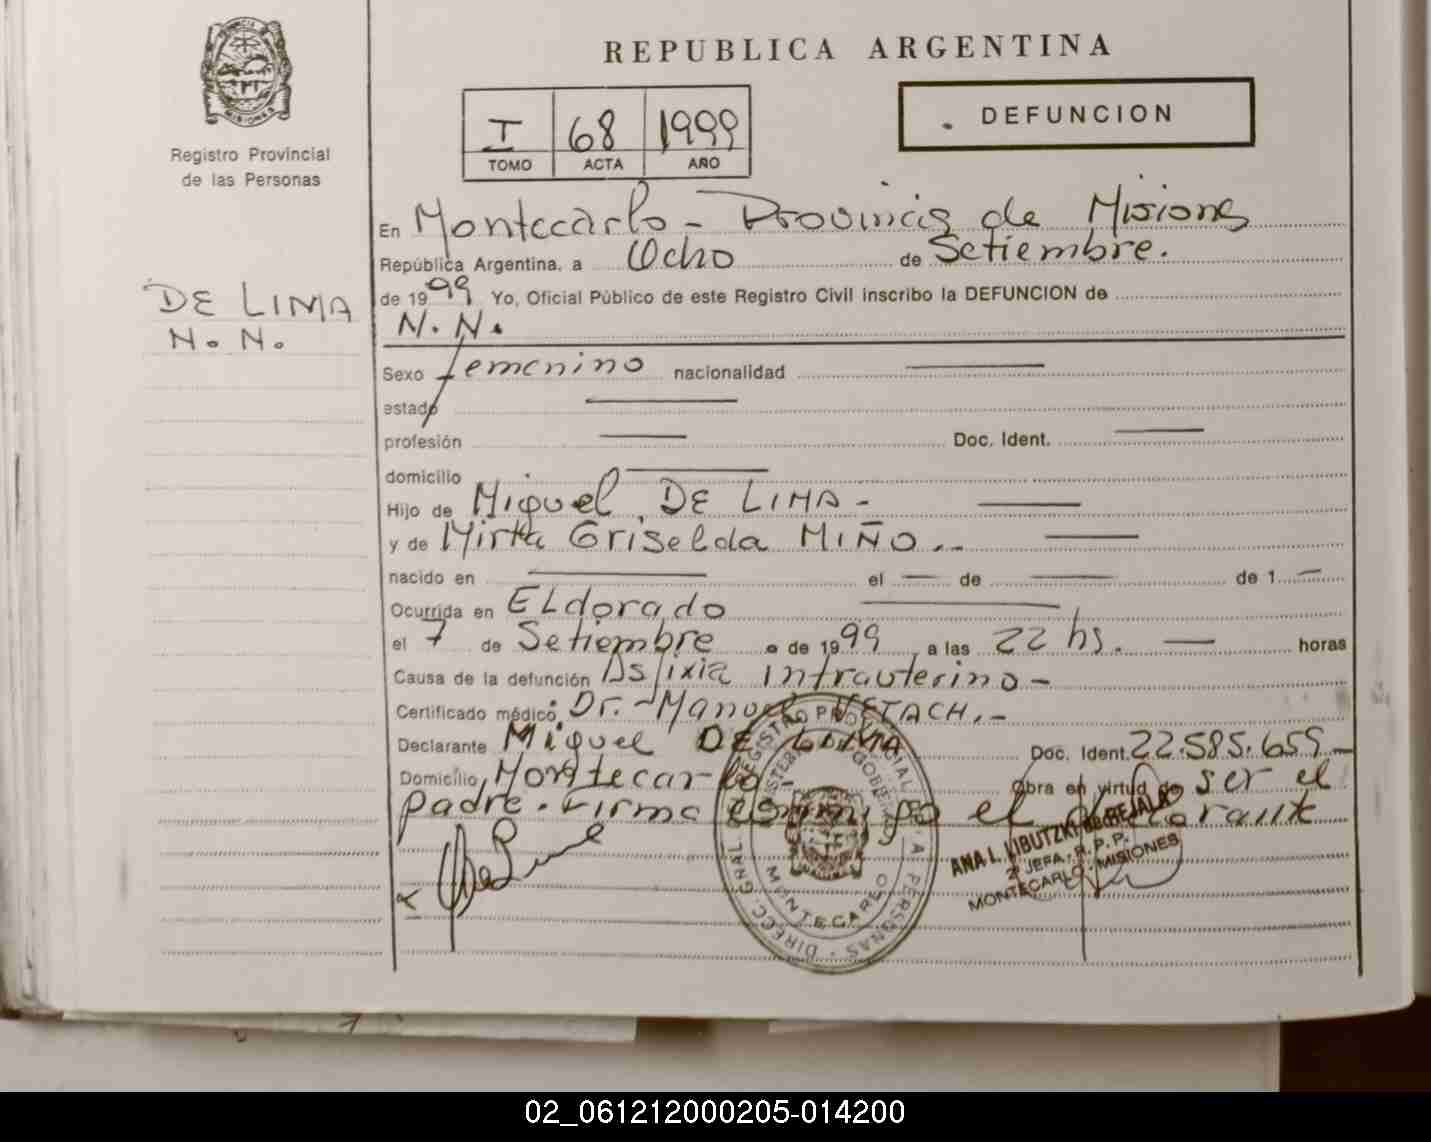 PROVINCIA DE
MISIONES
Registro Provincial
de las Personas
DE LIMA
N. N.
REPUBLICA ARGENTINA
I 68 1999
TOMO ACTA AÑO
DEFUNCION
En Montecarlo - Provincia de Misiones
República Argentina, a Ocho de Setiembre.
de 1999 Yo, Oficial Público de este Registro Civil inscribo la DEFUNCION de
N. N.
Sexo femenino nacionalidad
estado
profesión Doc. Ident.
domicilio
Hijo de Miguel DE LIMA -
y de Mirta Griselda MIÑO.-
nacido en el de de 1
Ocurrida en ELdorado
el 7 de Setiembre de 1999 a las 22 hs. horas
Causa de la defunción Asfixia intrauterino -
Certificado médico Dr. Manuel
Declarante Miguel DE LIMA Doc. Ident. 22.585.659
Domicilio Montecarlo - Obra en virtud de ser el
padre. Firma conmigo el declarante
DIRECC. GRAL. REGISTRO PROVINCIAL DE LA PERSONAS
MINISTERIO GOBIERNO
MONTECARLO
ANA L. LIBUTZKI
2º JEFA R. P. P.
MONTECARLO - MISIONES
02_061212000205-014200